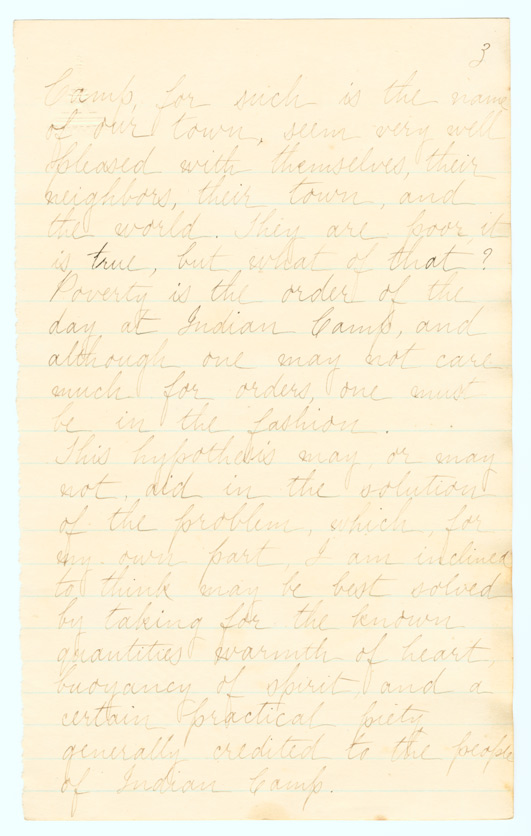 3
Camp, for such is the name
of our town, seem very well
pleased with themselves, their
neighbors, their town, and
the world. They are poor, it
is true, but what of that?
Poverty is the order of the
day at Indian Camp, and
although one may not care
much for orders, one must
be in the fashion.
This hypothesis may, or may
not, aid in the solution
of the problem, which, for
my own part, I am inclined
to think may be best solved
by taking for the known
quantities warmth of heart,
buoyancy of spirit, and a
certain practical piety
generally credited to the people
of Indian Camp.